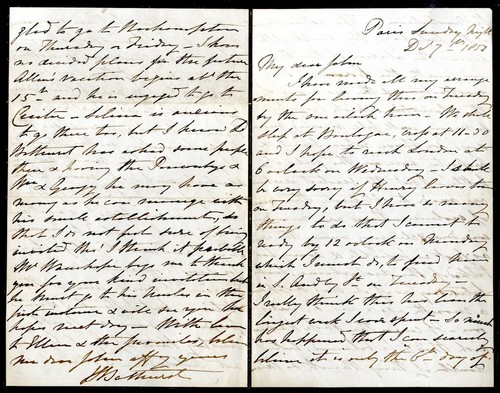 Paris Sunday Night
Dec 7th 1851
My dear John
I have made all my arrange
ments for leaving this on Tuesday
by the one o'clock train - We shall
sleep at Boulogne, 
and I hope to reach London at
6 o'clock on Wednesday - I shall
be very sorry if Henry
on Tuesday, but I have so many
things to do that I cannot be
ready by 12 o'clock on Tuesday
which I must do, to find him
in S. Audley St on Tuesday -
I really think this has been the
longest week I ever spent - So much
has happened that I can scarcely
believe it is only the 6th day of
glad to go to
on Thursday or Friday - I have
no decided plans for the future
vacation begins at the
15th and he is engaged to go to
Selina is
to go there too, but I know Ld
Bathurst has asked some people
there & having the
Wm & Georgy he may have as
many as he can manage with
his small establishment, so
that I do not feel sure of being
invited tho' I think it probable
Mr Wauchope begs me to thank
you for your kind invitation but
he must go to his Uncles in the
first instance & will see you he
hopes next day - With love
to Ellen & the believe
me dear John affly yours
Bathurst